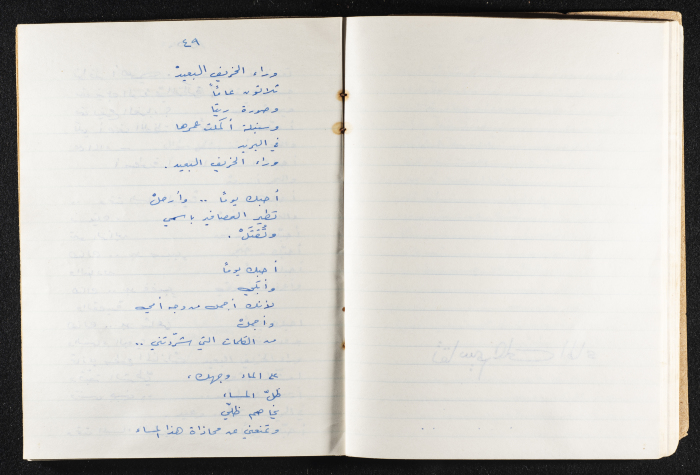 ٤٩
وراء الخريف البعيد
ثلاثون عاماً
وصورة ريتا
وسنبلة أكملت عمرها
في البريد
وراء الخريف البعيد .
أحبك يوماً .. وأرحلْ
تطير العصافير باسمي
وتُقتَلْ .
أحبك يوماً
وأبكي
لأنك أجمل من وجه أمي
وأجملْ
من الكلمات التي شرّدتني ..
على الماء وجهك ،
ظلّ المساء
يخاصم ظلّي
وتمنعني عن محاذاة هذا المساء